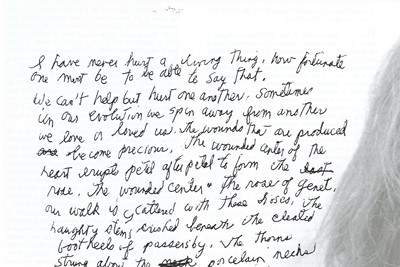 I have never hurt a living thing, how fortunate
one must be to be able to say that.
We can't help but hurt one another. Sometimes
in our evolution we spin away from another
we love or loved us. The wounds that are produced
become precious. The wounded center of the
heart erupts petal after petal to form the
rose. The wounded center" the rose of Genet.
our walk is scattered with these roses. The
naughty stems crushed beneath the cleated
bootheels of passersby. The thorns
strung about the porcelain necks